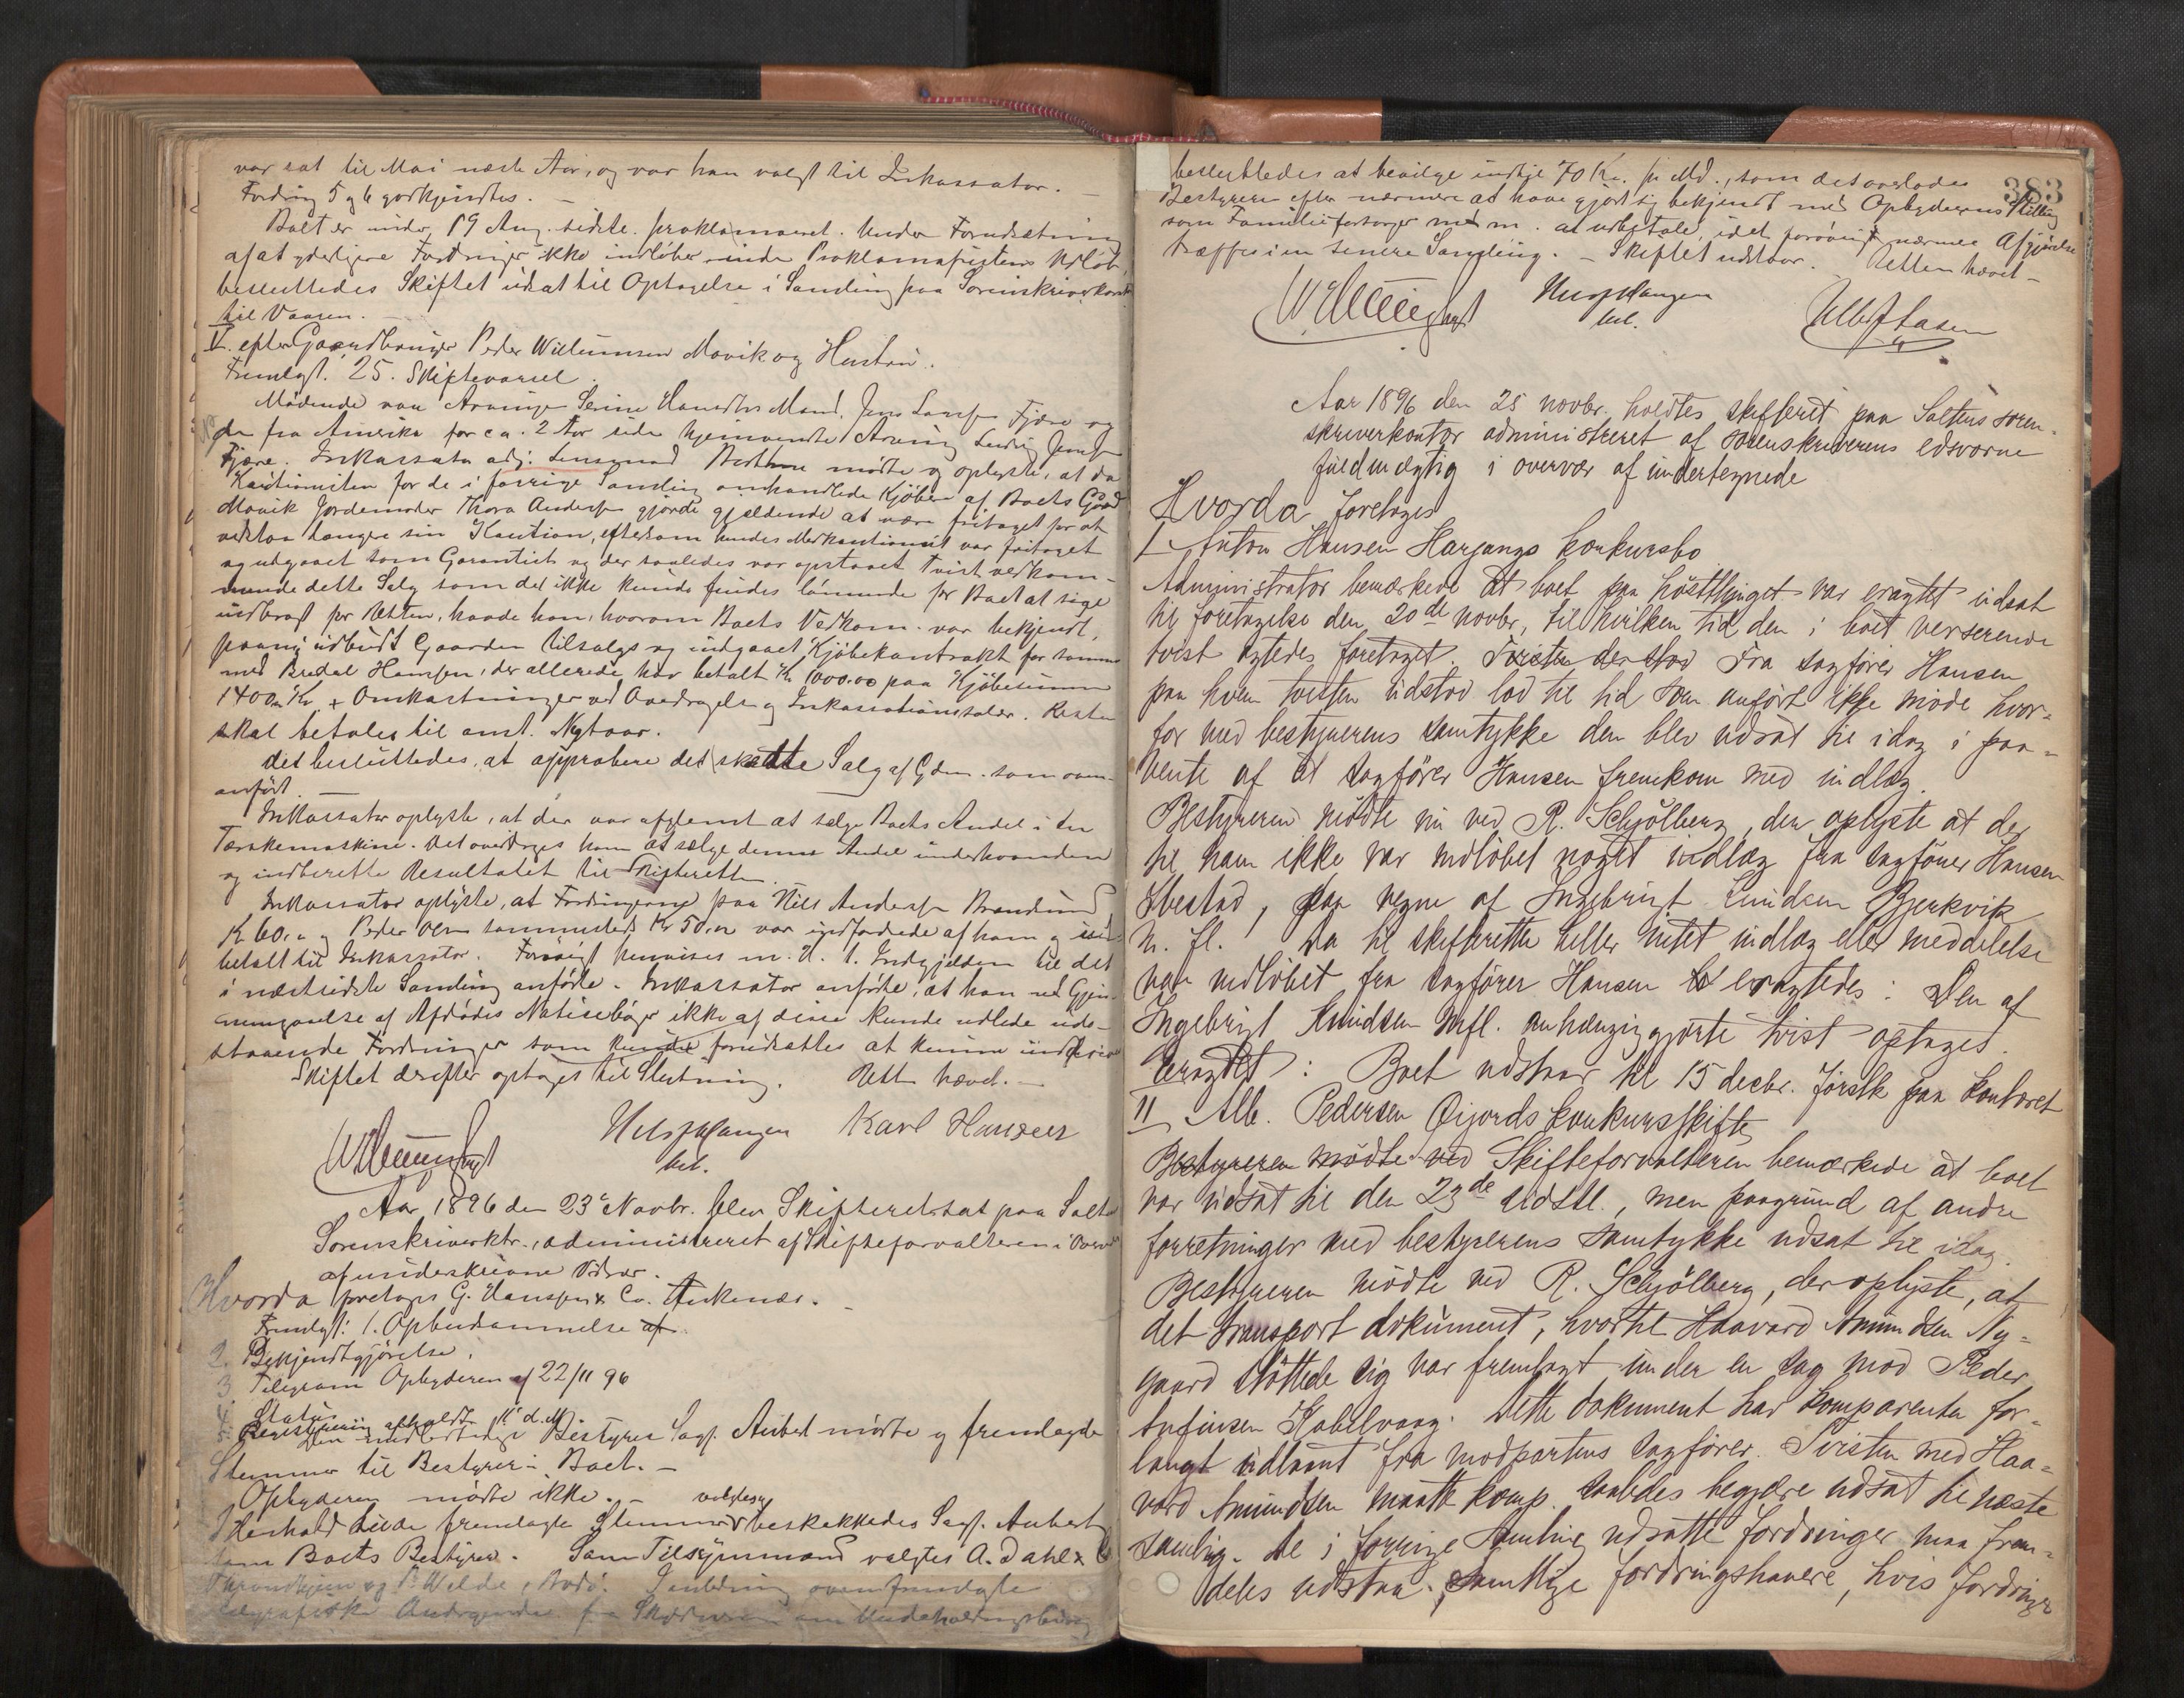 var sat til Mai næste Aar, og var han valgt til Inkassator. –
Fordring 5 og 6 godkjendtes. –
Boet er under 19 Aug. sidstl. proklameret. Under Forudsætning
af at yderligere Fordringer ikke indløber inden Proklamafristens Udløb,
besluttedes Skiftet udsat til Optagelse i Samling paa Sorenskriverkontoret
til Vaaren. –
V. efter Gaardbruger Peder Willumsen Mavik og Hustru.
Fremlagt. 25. Skiftevarsel.
Mødende var Arvingen Serine Hansdtrs Mand, Jens Fjære og
den fra Amerika for ca. 2 Aar siden hjemvendte Arving Ludvig Jensen
Fjære. Inkassator adj: Lensmand mødte og oplyste, at da
Kautionisten for de i forrige Samling omhandlede Kjøber af Boets Gaard
Mavik Jordemoder Thora Andersen gjorde gjældende at være fritaget for at
vedstaa længere sin Kaution, eftersom hendes Medkautionist var fritaget
og udgaaet som Garantist og der saaledes var opstaaet Tvist vedkom-
mende dette Salg som det ikke kunde findes lønnende for Boet at sige
indbragt for Retten, havde han, hvorom Boets Vedkom. var bekjendt,
paany udbudt Gaarden tilsalgs og indgaaet Kjøbekontrakt for samme
med Bredal Hansen, der allerede har betalt Kr 1000.00 paa Kjøbesummen
1400 Kr + Omkostninger ved Overdragelse og Inkassationssalær. Resten
skal betales til anst. Nytaar.
Det besluttedes, at approbere det skedte Salg af Gdn. som oven-
anført. –
Inkassator oplyste, at der var afglemt at sælge Boets Andel i en
Tærskemaskine. Det overdroges ham at sælge denne Andel underhaanden
og indberette Resultatet til Skifteretten.
Inkassator oplyste, at Fordringerne paa Nils Andersen
Kr 60.- og Peder Olsen sammesteds Kr 50.00 var indfordrede af ham og ind-
betalt til Inkassator. Forøvrigt henvises m. H. t. Indgjælden til det
i næstsidste Samling anførte. Inkassator anførte, at han ved Gjen-
nemgaaelse af Afdødes Notisebøger ikke af disse kunde udlede ude-
staaende Fordringer som kunde forudsættes at kunne inddrives
Skiftet derefter optages til Slutning. Retten hævet. –
Karl Hansen
Aar 1896 den 23de Novbr. blev Skifteret sat paa Salten
Sorenskriverktr., administreret af Skifteforvalteren i Overvær
af underskrevne Vidner.
Hvorda foretoges G. Hanssen & Co. Ankenæs. –
Fremlagt: 1. Opbudsanmeldelse af
2. Bekjendtgjørelse.
3 Telegram Opbyderen af 22/11 96
4. Status
5. Registrering afholdt 11' d. M.
Den midlertidige Bestyrer Sagf. Aubert mødte og fremlagde
Stemmer til Bestyrer i Boet. –
Opbyderen mødte ikke. –
I Henhold til de fremlagte Stemmer valgtes og beskikkedes Sagf. Aubert
som Boets Bestyrer. Som Tilsynsmænd valgtes A. Dahl & Co
Throndhjem og P. Welde, Bodø. I Anledning ovenfremlagte
telegrafiske Andragende fra om Underholdningsbidrag
383
besluttedes at bevilge indtil 70 Kr. pr Md., som det overlodes
Bestyreren efter nærmere at have gjort sig bekjendt med Opbyderens Stilling
som Familieforsørger med m. at udbetale, idet forøvrigt nærmere Afgjørelse
træffes i en senere Samling. – Skiftet udstaar. Retten hævet –
Aar 1896 den 25 novbr. holdtes skifteret paa Saltens soren-
skriverkontor administreret af sorenskriverens edsvorne
fuldmægtig i overvær af undertegnede
Hvorda foretoges
I Anton Hansen Harjangs konkursbo
Administrator bemærkede at boet paa høstthinget var eragtet udsat
til foretagelse den 20de novbr, til hvilken tid den i boet verserende
tvist agtedes foretaget. Tvisten derstod Fra sagfører Hansen
paa hvem tvisten udstod lod til tid som anført ikke møde hvor-
for med bestyrerens samtykke den blev udsat til idag i paa-
vente af at sagfører Hansen fremkom med indlæg.
Bestyreren mødte nu ved R. Schjølberg, der oplyste at der
til ham ikke var indløbet noget indlæg fra sagfører Hansen
Ibestad, paa vegne af Ingebrigt Knudsen Bjerkvik
m. fl. Da til skifteretten heller intet indlæg eller meddelelse
var indløbet fra sagfører Hansen eragtedes: Den af
Ingebrigt Knudsen mfl. anhængiggjorte tvist optages.
Eragtet: Boet udstaar til 15 decbr. førstk paa kontoret
II Alb. Pedersen Øijords konkursskifte
Bestyreren mødte ved Skifteforvalteren bemærkede at boet
var udsat til den 23de sidstl., men paagrund af andre
forretninger med bestyrerens samtykke udsat til idag.
Bestyreren mødte ved R. Schjølberg, der oplyste, at
det transport dokument, hvortil Haavard Amundsen Ny-
gaard støttede sig var fremlagt under en sag mod Peder
Anfinsen Kabelvaag. Dette dokument har komparenten for-
langt udlaant fra modpartens sagfører. Tvisten med Haa-
vard Amundsen maatte komp. saaledes begjære udsat til næste
samling. De i forrige samling udsatte fordringer maa frem-
deles udstaa. Samtlige fordringshavere, hvis fordringer